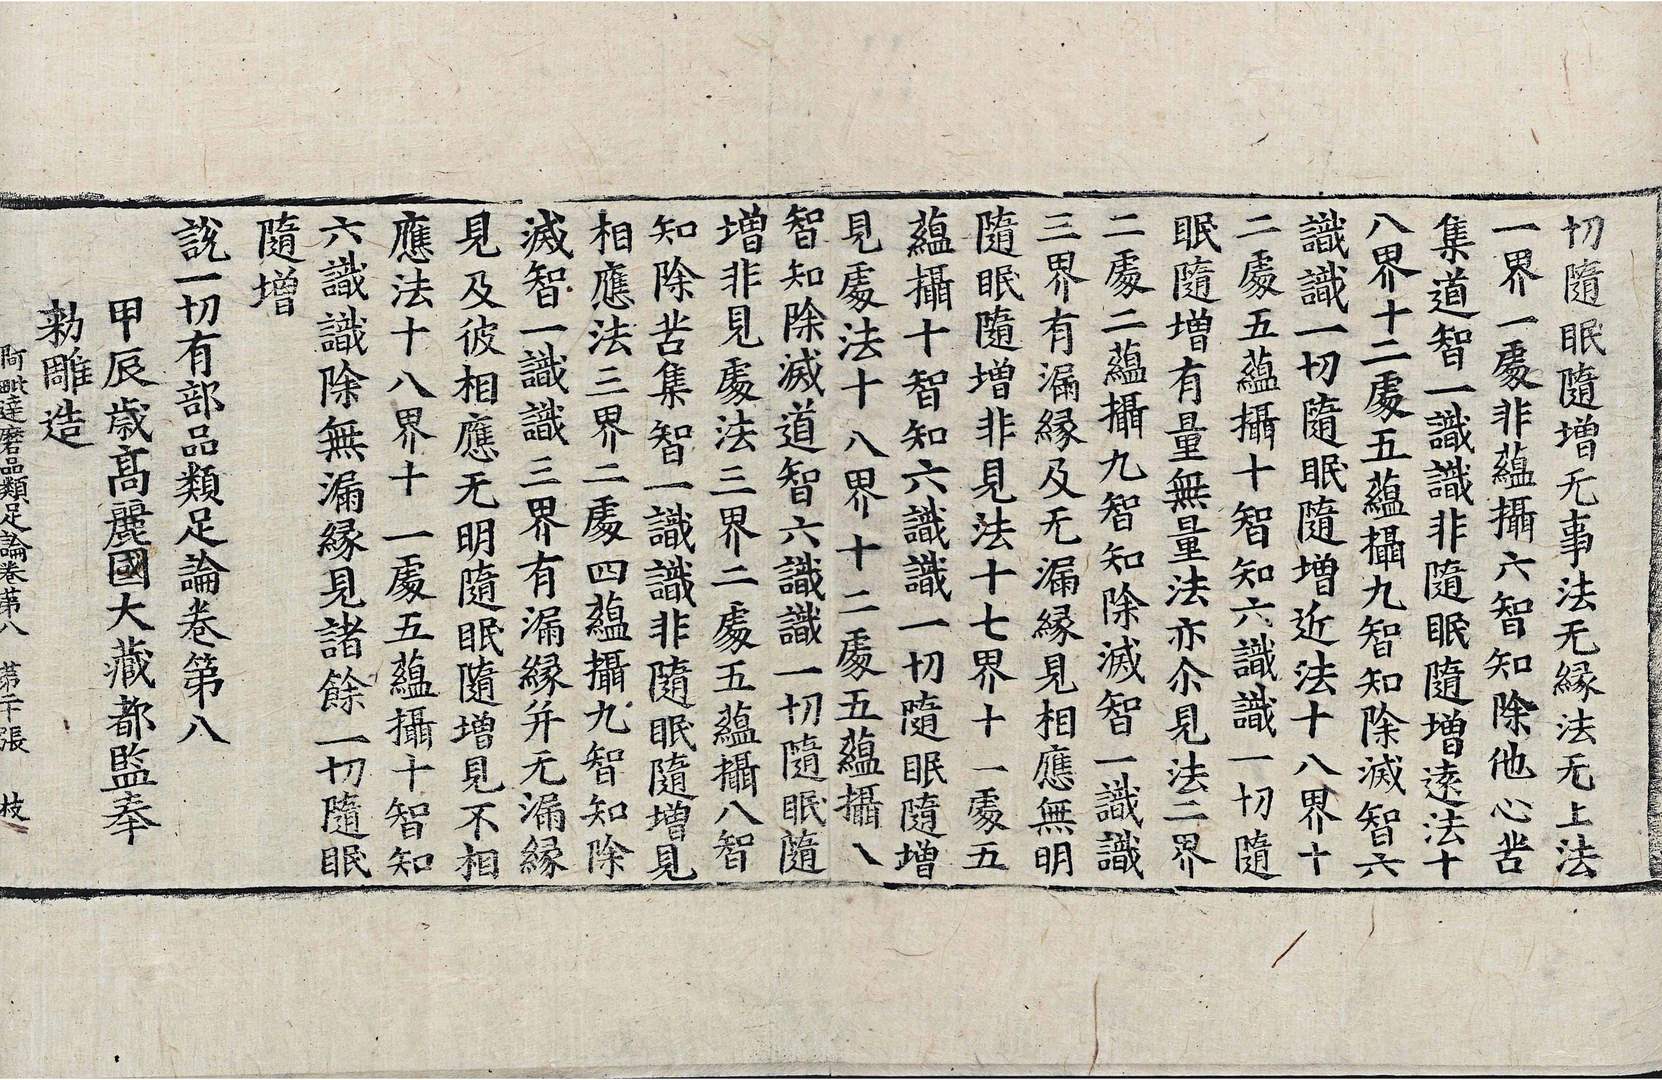 切隨眠隨增无事法无緣法无上法
一界一處非蘊攝六智知除他心苦
集道智一識識非隨眠隨增遠法十
八界十二處五蘊攝九智知除滅智六
識識一切隨眠隨增近法十八界十
二處五蘊攝十智知六識識一切隨
眠隨增有量無量法亦尒見法二界
二處二蘊攝九智知除滅智一識識
三界有漏緣及无漏緣見相應無明
隨眠隨增非見法十七界十一處五
蘊攝十智知六識識一切隨眠隨增
見處法十八界十二處五蘊攝八
智知除滅道智六識識一切隨眠隨
增非見處法三界二處五蘊攝八智
知除苦集智一識識非隨眠隨增見
相應法三界二處四蘊攝九智知除
滅智一識識三界有漏緣并无漏緣
見及彼相應无明隨眠隨增見不相
應法十八界十一處五蘊攝十智知
六識識除無漏緣見諸餘一切隨眠
隨增
說一切有部品類足論卷第八
甲辰歲高麗國大藏都監奉
勑雕造
阿毗達磨品類足論卷第八　第二十張　枝